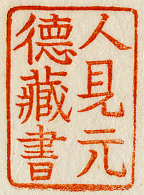 人見元
德藏書